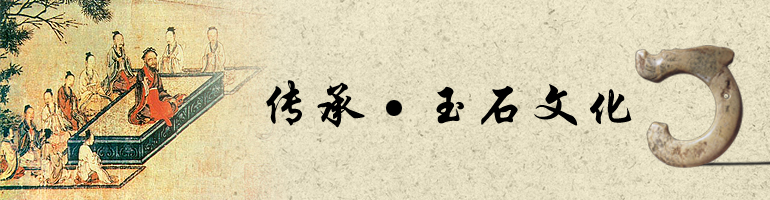 传承•玉石文化